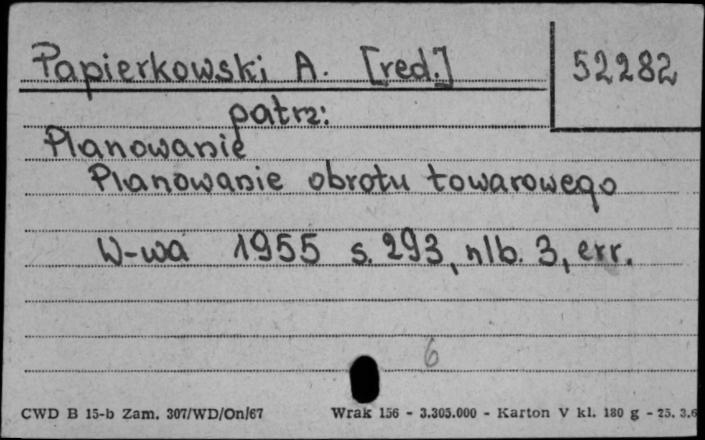 Papierkowski A. [red.] 52282
patrz:
Planowanie
Planowanie obrotu towarowego
W-wa 1955 s. 293, nlb. 3, err.
6
CWD B 15-b Zam. 307/WD/On/67 Wrak 156 - 3.305.000 - Karton V kl. 180 g - 25. 3.6